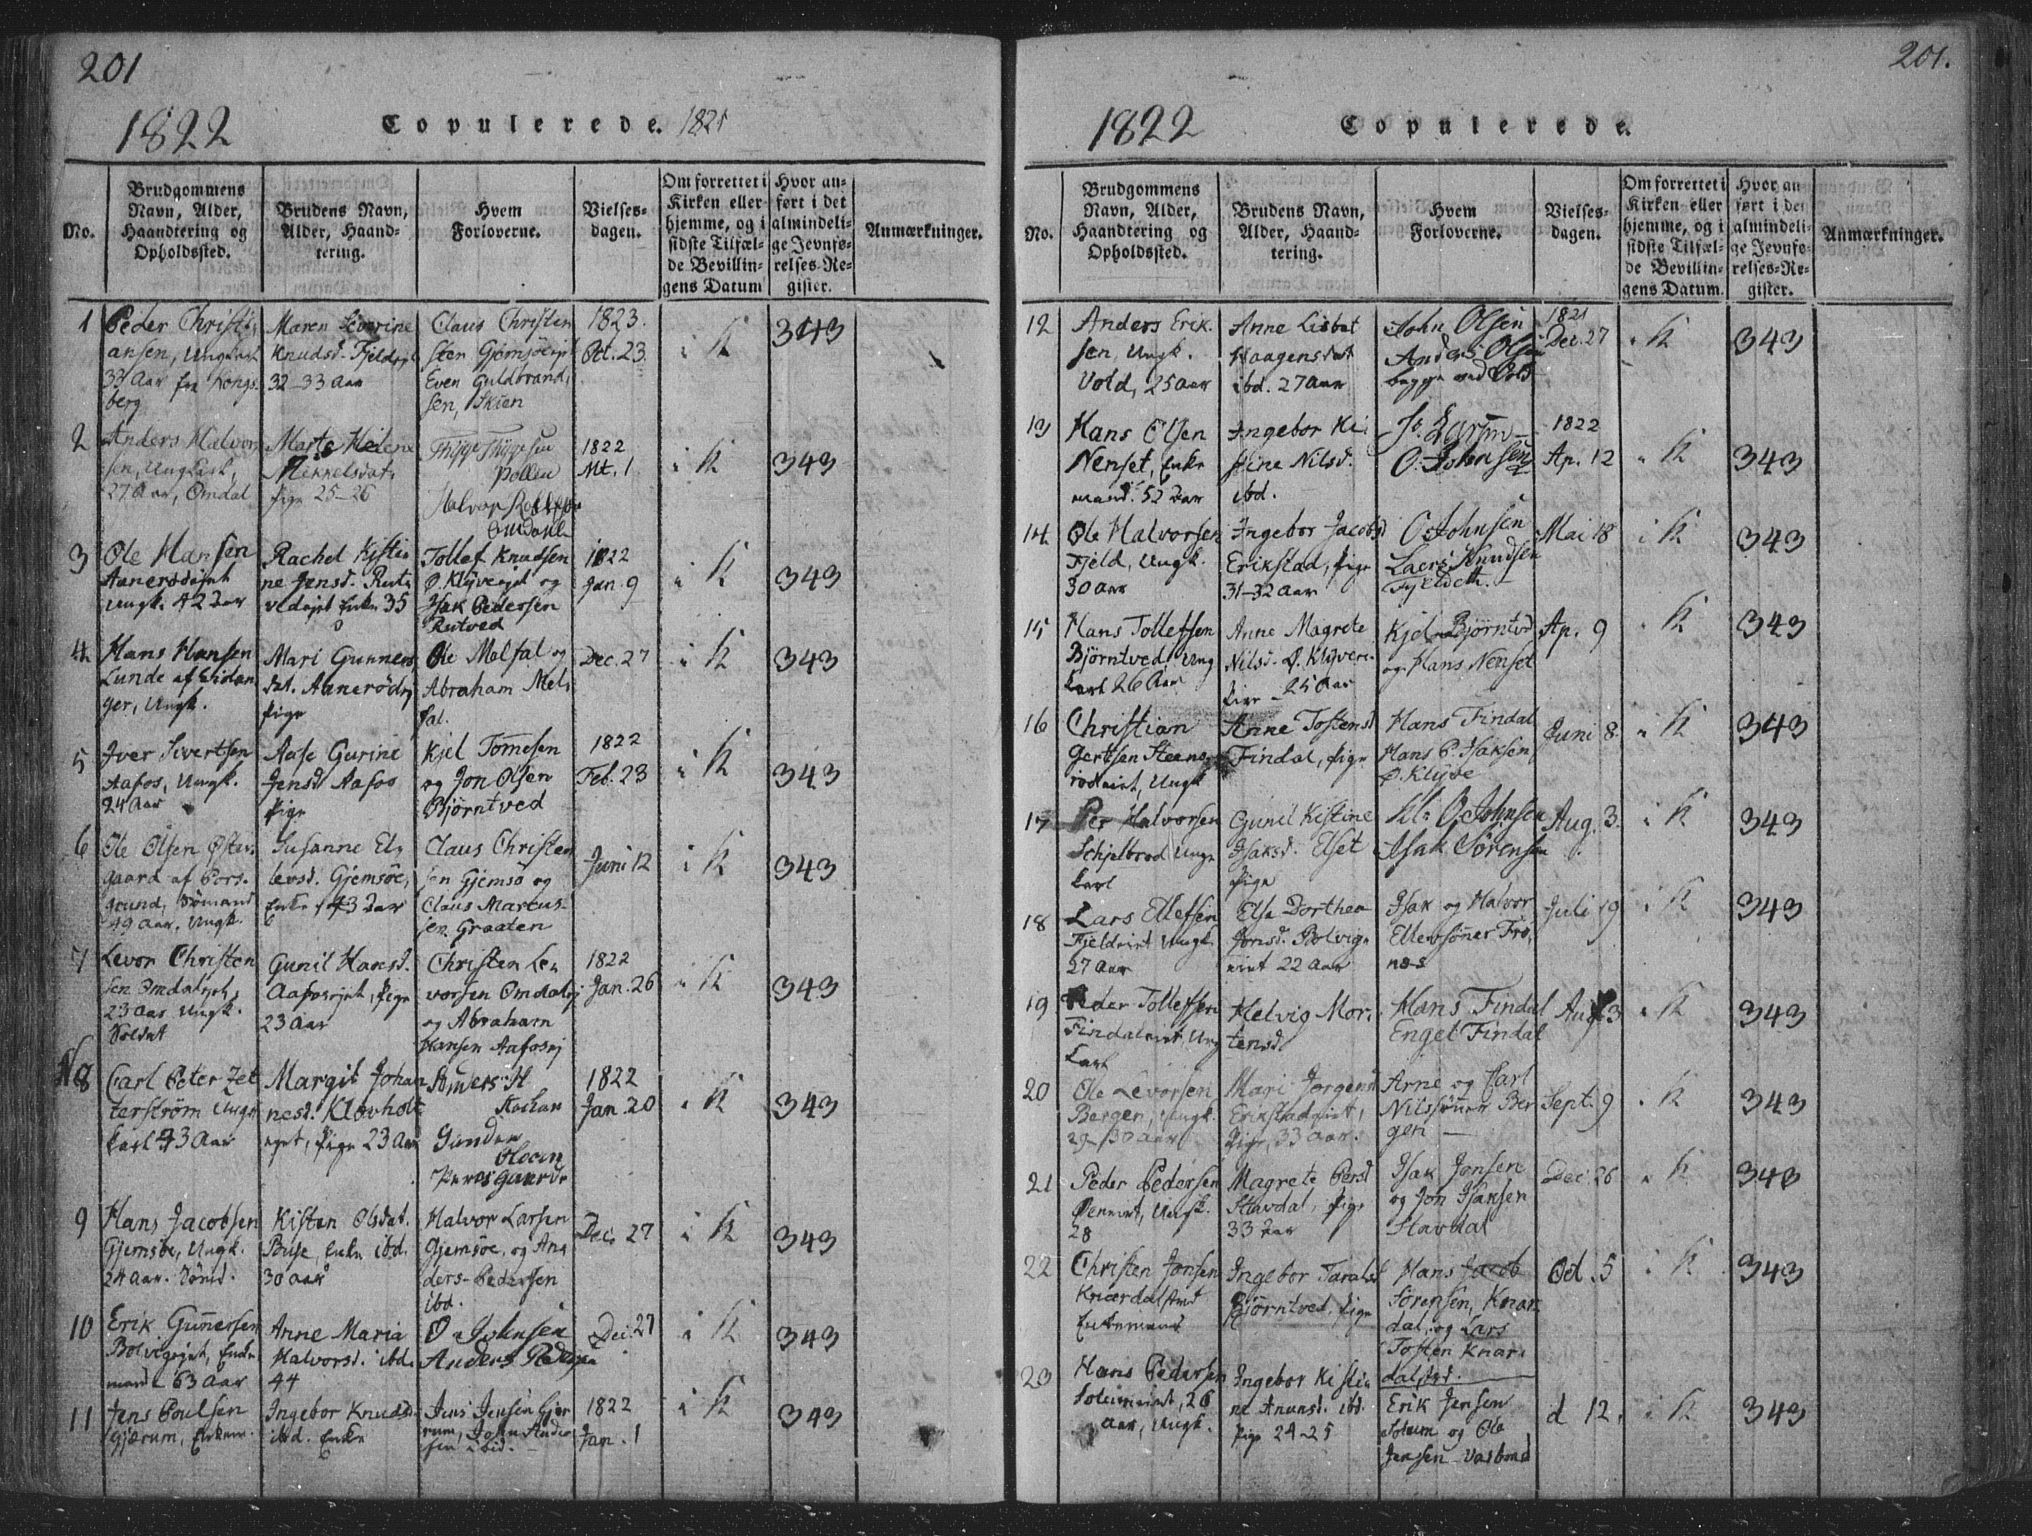 201
1822 Copulerede. 1821
No.
Brudgommens
Navn, Alder,
Haandtering og
Opholdssted.
Brudens Navn,
Alder, Haand-
tering.
Hvem
Forloverne.
Vielses-
dagen.
Om forrettet i
Kirken eller
hjemme, og i
sidste Tilfæl-
de Bevillin-
gens Datum
Hvor an-
ført i det
almindeli-
ge Jevnfø-
relses-Re-
gister.
Anmærkninger.
1
Peder Christi-
ansen, Ungkarl
33 Aar fra Kongs-
berg
Maren Severine
Knudsd. Fjeld
32-33 Aar
Claus Christen
sen Gjemsøe
Even Guldbrand
sen, Skien
1823.
Oct. 23.
i K
343
2
Anders Halvor
sen, Ungkarl,
27 Aar, Omdal
Marte Helene
Mikkelsdat.
Pige 25-26
Thygge Thygesen
Pollen
Halvor
Omdahl
1822
Mt. 1
i K
343
3
Ole Hansen
Aanerød
Ungk. 42 Aar
Rachel Kisti
ne Jensd. Rut
Enke 35
Tollef Knudsen
Ø. Klyve og
Isak Pedersen
Rutved
1822
Jan. 9
i K
343
4
Hans Hansen
Lunde af Eidan
ger, Ungk.
Mari Gunners
dat. Aanerød
Pige
Ole Melfal og
Abraham Mel-
fal.
Dec. 27
i K
343
5
Iver Sivertsen
Aafos, Ungk.
24 Aar
Aase Gurine
Jensd Aafos
Pige
Kjel Tomesen
og Jon Olsen
Bjørntved
1822
Feb. 23
i K
343
6
Ole Olsen Øster-
gaard af Pors-
grund, Sømand
49 Aar, Ungk.
Susanne El
levsd. Gjemsøe,
Enke, 43 Aar
Claus Christen
sen Gjemsø og
Claus Martus-
sen Graaten
Juni 12
i K
343
7
Levor Christen
sen Omdals
23 Aar Ungk.
Soldat
Gunil Hansd.
Aafos, Pige
23 Aar
Christen Le
vorsen Omdals
og Abraham
Hansen Aafos
1822
Jan. 26
i K
343
8
Carl Peter Zet
terstrøm Ung
karl 43 Aar
Margit Johan
nesd. Klovholt
eget, Pige 23 Aar
H
Gunder
Olsen
1822
Jan. 20
i K
343
9
Hans Jacobsen
Gjemsøe, Ungk.
24 Aar. Sømd.
Kisten Olsdat.
Enke ibd.
30 Aar
Halvor Larsen
Gjemsøe, og An
ders Pedersen
ibd.
Dec. 27
i K
343
10
Erik Gunnersen
Bolvig, Enke
mand 63 Aar
Anne Maria
Halvorsd. ibd.
44
O. Johnsen
Anders Pedersen
Dec. 27
i K
343
11
Jens Poulsen
Gjærum, Enkem.
Ingebor Knudsd
ibd. Enke
Jens Jensen Gjer
rum, John Andr
sen ibid.
1822
Jan. 1
i K
343
201.
1822 Copulerede.
No.
Brudgommens
Navn, Alder,
Haandtering og
Opholdssted.
Brudens Navn,
Alder, Haand-
tering.
Hvem
Forloverne.
Vielses-
dagen.
Om forrettet i
Kirken eller
hjemme, og i
sidste Tilfæl-
de Bevillin-
gens Datum.
Hvor an-
ført i det
almindeli-
ge Jevnfø-
relses-Re-
gister.
Anmærkninger.
12
Anders Erik-
sen, Ungk.
Vold, 25 Aar
Anne Lisbet
Haagensdat
ibd. 27 Aar
John Olsen
Anders Olsen
begge ved Vold
1821
Dec. 27
i K
343
13
Hans Olsen
Nenset, Enke
mand. 52 Aar
Ingebor Ki
stine Nilsd.
ibd.
O. Johnsen
1822
Ap. 12
i K
343
14
Ole Halvorsen
Fjeld, Ungk.
30 Aar
Ingebor Jacobsd
Erikstad, Pige
31-32 Aar
O. Johnsen
Lars Knudsen
1822
Mai 18
i K
343
15
Hans Tollefsen
Bjørntved Ung
karl 26 Aar
Anne Magrete
Nilsd. Ø. Klyve
Pige 25 Aar
Kjel Bjørntved
og Hans Nenset
Ap. 9
i K
343
16
Christian
Gertsen Steens
rødeiet, Ungk
Anne Tostensd
Findal, Pige
Hans Findal
Hans P. Isaksen
Ø. Klyve
Juni 8.
i K
343
17
Per Halvorsen
Schjelbred Ung
karl
Gunil Kistine
Isaksd. Elset
Pige
O. Johnsen
Isak Sørensen
Aug. 3.
i K
343
18
Lars Ellefsen
Fjeldeiet Ungk.
27 Aar
Else Dorthea
Jonsd. Bolvigs
eiet 22 Aar
Isak og Halvor
Ellevsønner Fro
nes
Juli 19
i K
343
19
Peder Tollefsen
Findaleiet, Ung
karl
Helvig Mor-
tensd.
Hans Findal
Engel Findal
Aug. 3
i K
343
20
Ole Levorsen
Bergen, Ungk.
29-30 Aar
Mari Jørgensd
Erikstadeiet,
Pige, 33 Aar.
Arne og Carl
Nilssønner Ber
gen
Sept. 9
i K
343
21
Peder Pedersen
Ungk.
28
Magrete Persd
Stavdal, Pige
33 Aar
Isak Jonsen
og Jon Hansen
Stavdal
Dec. 26
i K
343
22
Christen Jonsen
Knardalstrand
Enkemand
Ingebor Taralsd
Bjørntved, Pige
Hans Jacob
Sørensen, Knar
dal, og Lars
Tosten Knar-
dalstrd.
Oct. 5
i K
343
23
Hans Pedersen
Solumeiet, 26
Aar, Ungk.
Ingebor Kisti
ne Anunsd. ibd.
Pige 24-25
Erik Jensen
Solum og Ole
Jensen
d 12.
i K
343